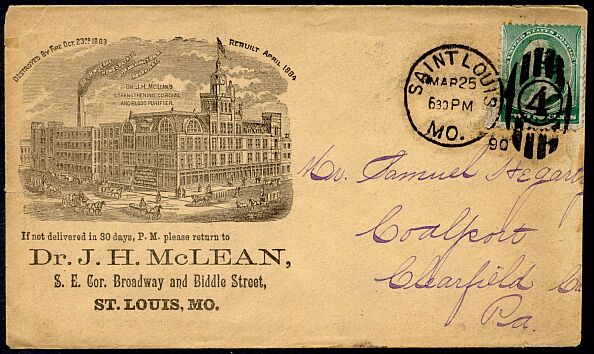 DESTROYED BY FIRE OCT. 23RD 1883
REBUILT APRIL 1884
DR. J.H. McLEAN'S
STRENGTHENING CORDIAL
AND BLOOD PURIFIER.
If not delivered in 30 days, P. M. please return to
Dr. J. H. McLEAN,
S. E. Cor. Broadway and Biddle Street,
ST. LOUIS, MO.
SAINT LOUIS
MAR 25
630 PM
MO.
90
4
UNITED STATES POSTAGE
Mr. Samuel Hegarty
Coalport
Clearfield Co
Pa.